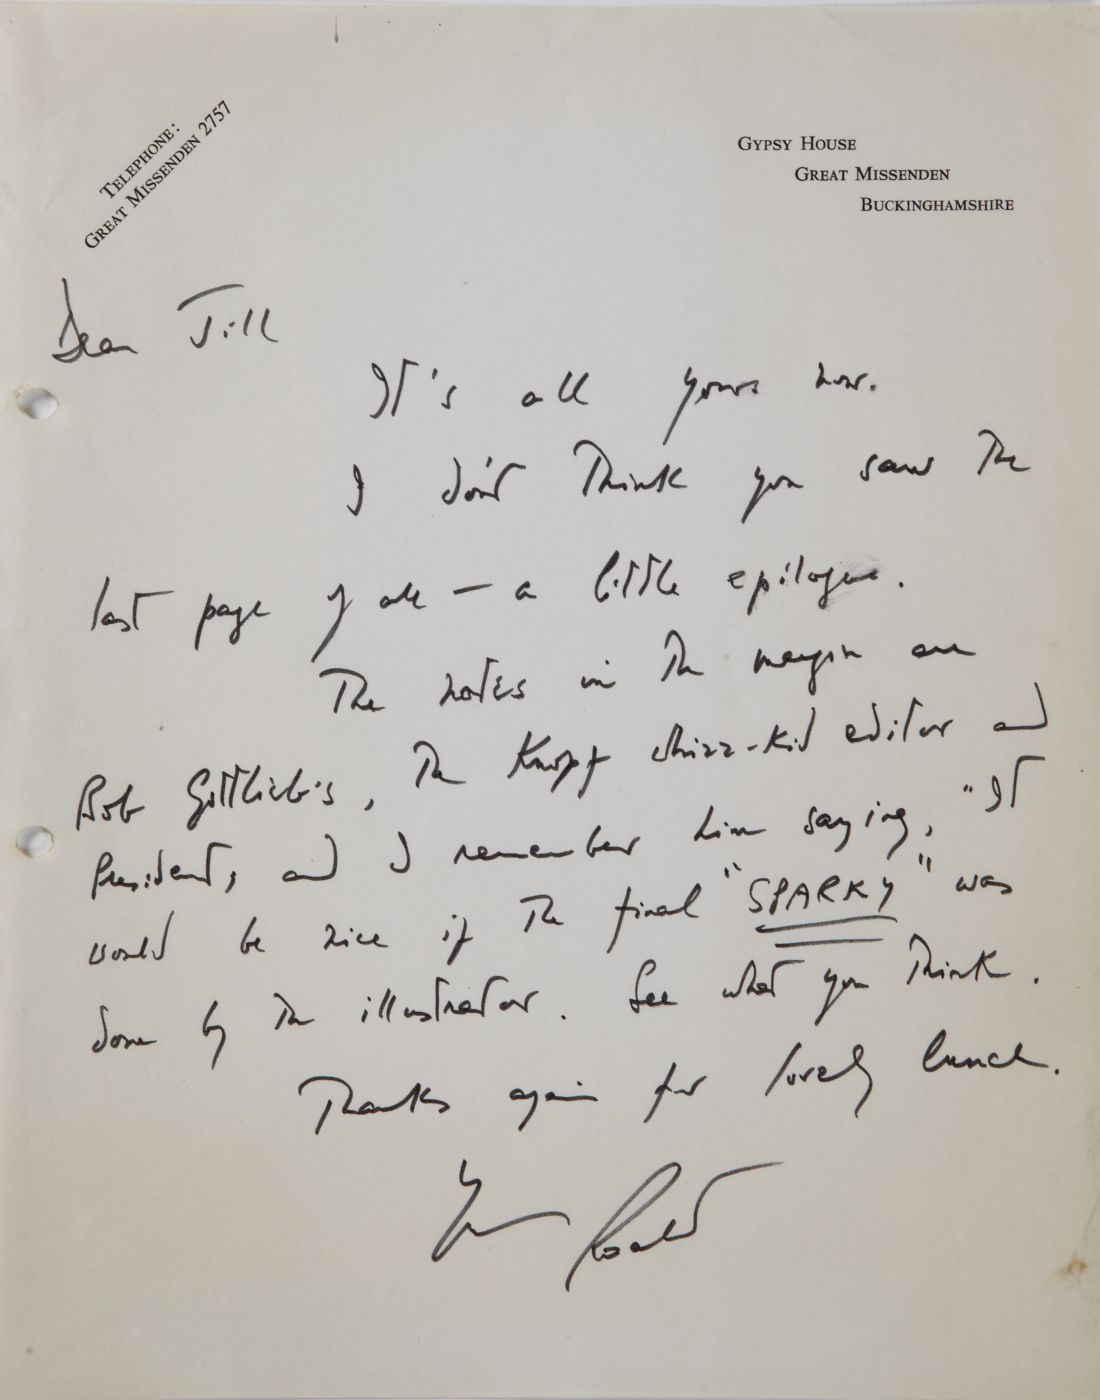 TELEPHONE:
GREAT MISSENDEN 2757
GYPSY HOUSE
GREAT MISSENDEN
BUCKINGHAMSHIRE
Dear Jill
It's all yours now.
I don't think you saw the
last page of all — a little epilogue.
The notes in the margin are
Bob Gottlieb's, the Knopf whizz-kid editor and
President, and I remember him saying, "It
would be nice if the final "SPARKY" was
done by the illustrator. See what you think.
Thanks again for lovely lunch.
Yours Roald